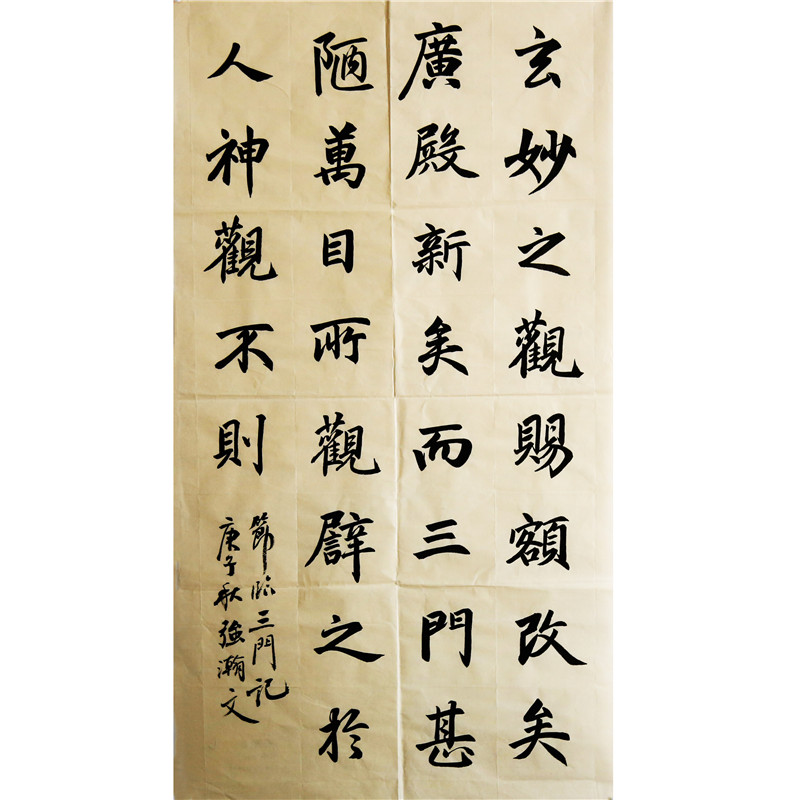 玄妙之觀賜額改矣
廣殿新矣而三門甚
陋萬目所觀譬之於
人神觀不則
節臨三門記
庚子秋強瀚文